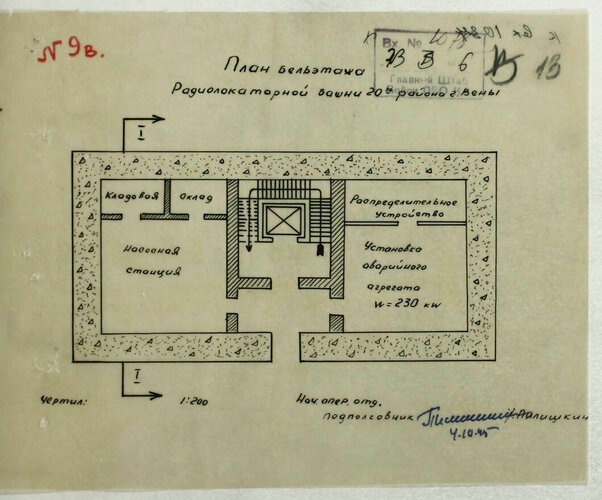 N 9в.
Вх №
В 6
13
Главный Штаб
План бельэтажа
Радиолокаторной башни 20го района г. Вены
I
Кладовая
Склад
Распределительное
устройство
Насосная
станция
Установка
аварийного
агрегата
w = 230 kw
I
Чертил:
1:200
Нач. опер. отд.
подполковник
Палишкин
4.10.45